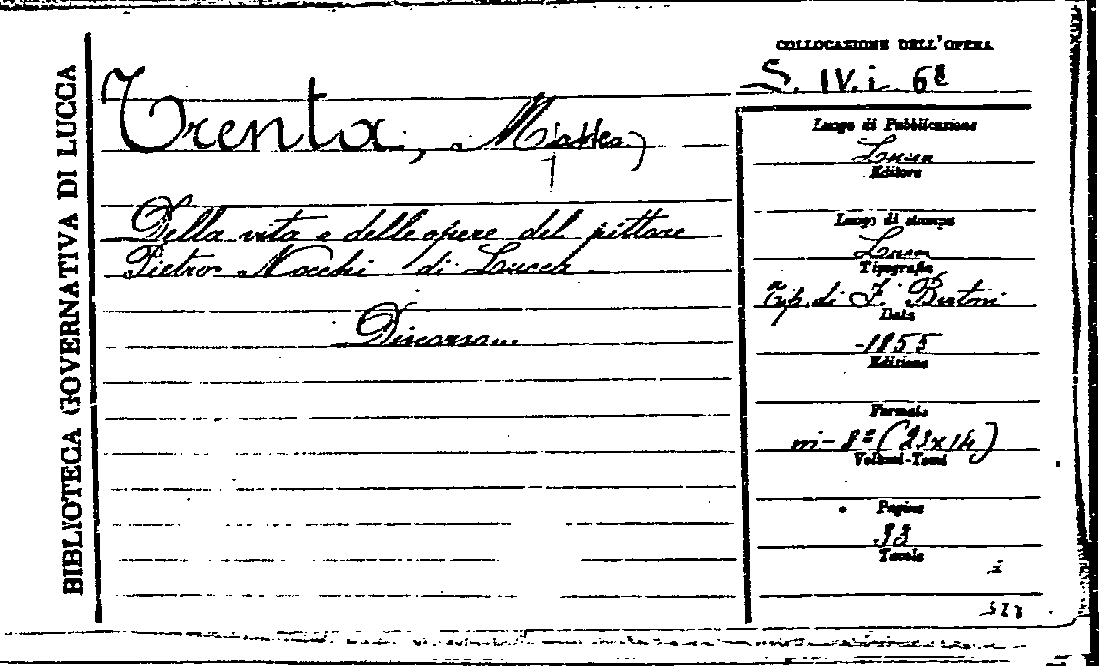 BIBLIOTECA GOVERNATIVA DI LUCCA
Trenta, Matteo
Della vita e delle opere del pittore
Pietro Nocchi di Lucca
Discorso...
COLLOCAZIONE DELL'OPERA
S. IV. i. 68
Luogo di Pubblicazione
Lucca
Editore
Luogo di stampa
Lucca
Tipografia
Tip. di F. Bertoni
Data
1855
Edizione
Formato
in-8º (23x14)
Volumi-Tomi
Pagine
33
Tavole